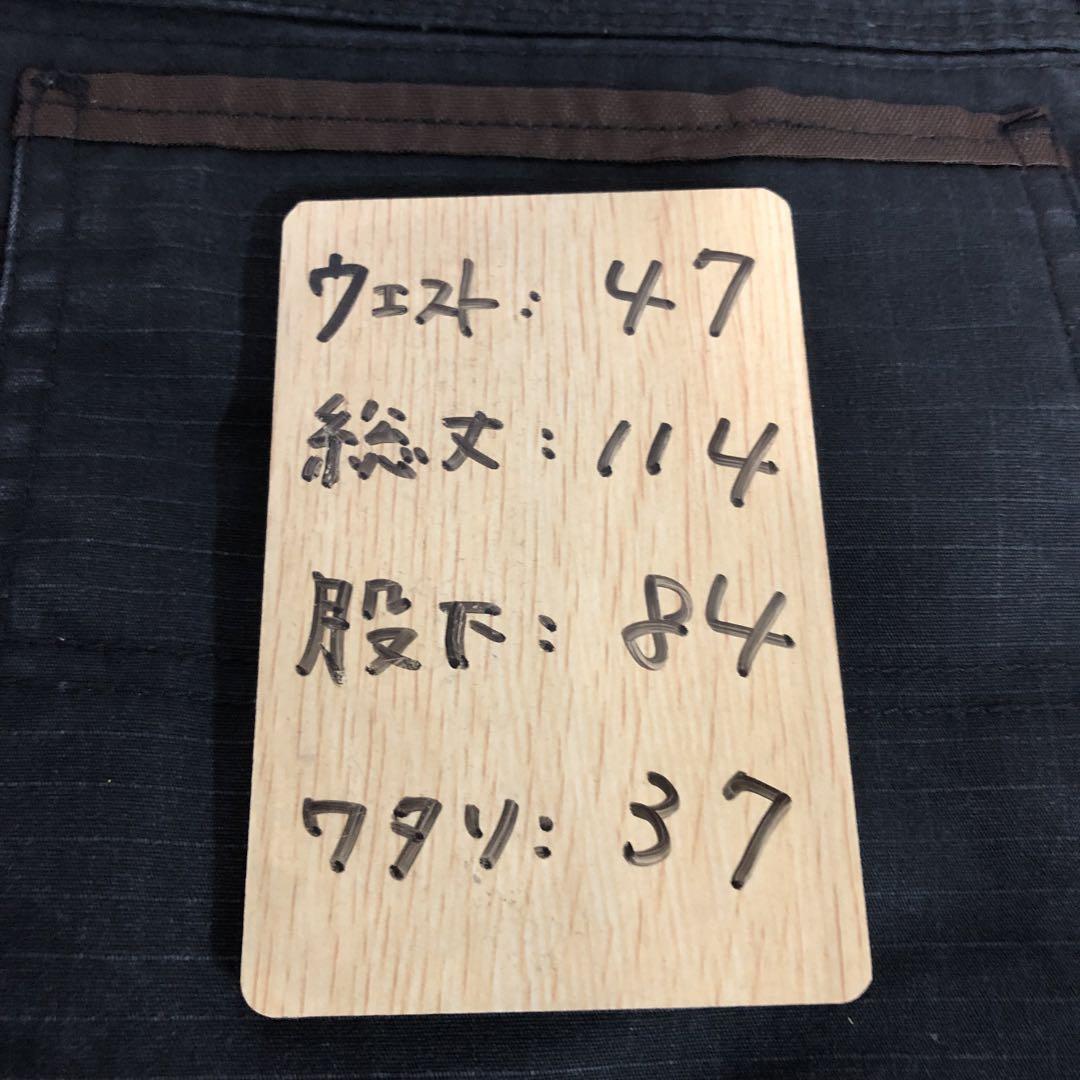 ウエスト: 47
総丈: 114
股下: 84
ワタリ: 37